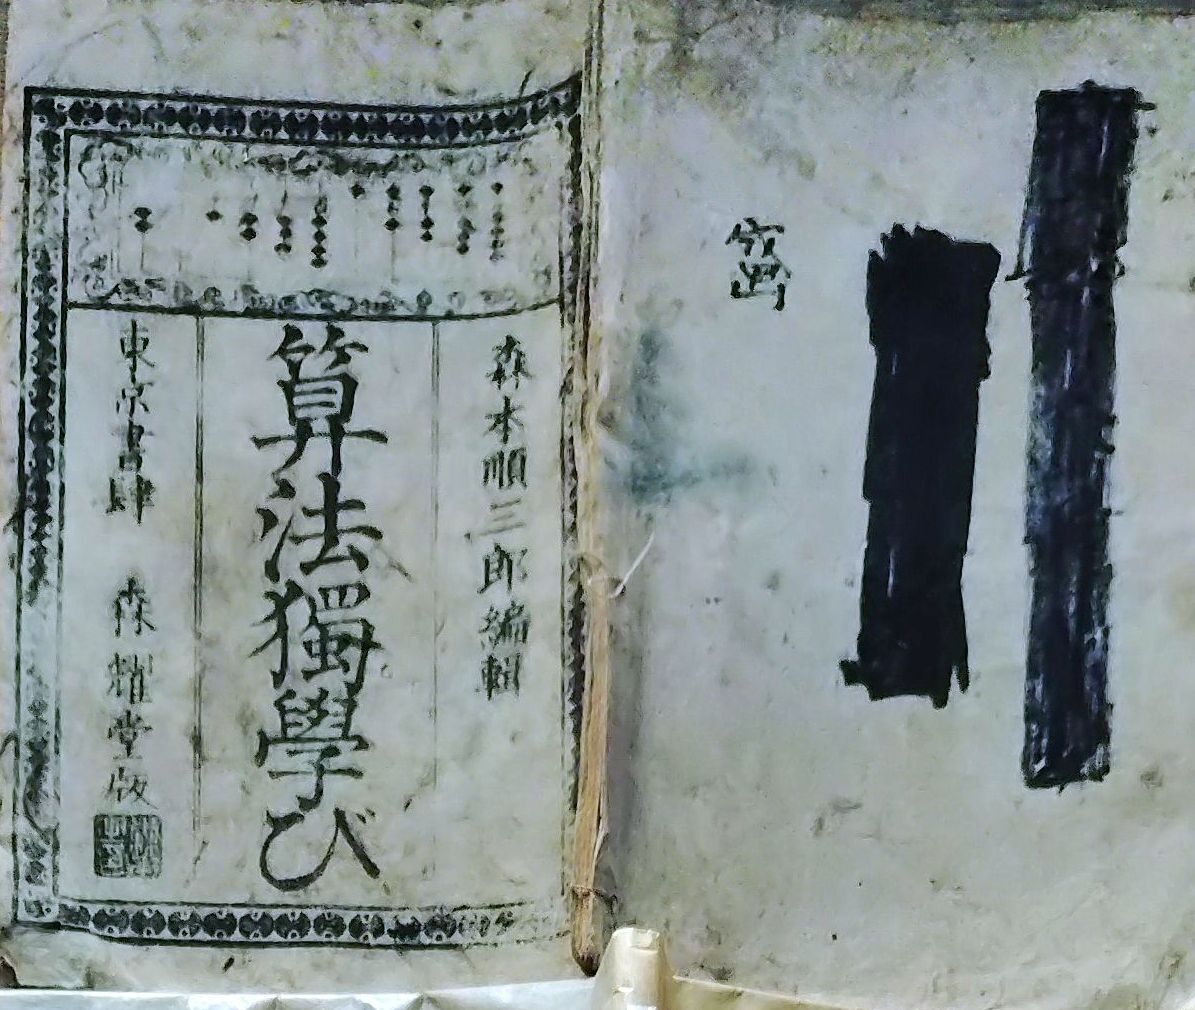 森本順三郎編輯
算法獨學び
東京書肆 森耀堂版